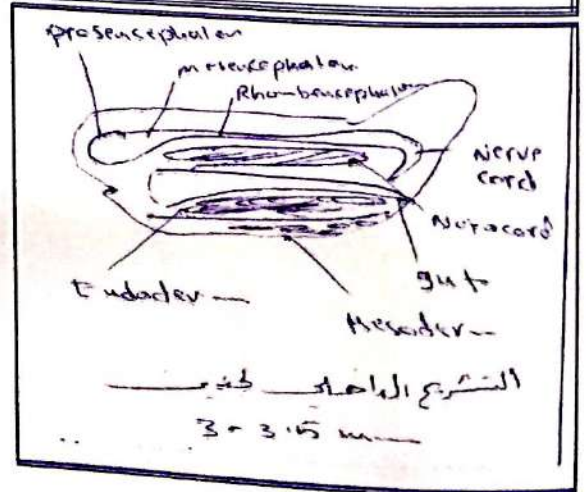 prosencephalon
mesencephalon
Rhombencephalon
Nerve
cord
Notocord
gut
Endoderm
Mesoderm
التشريح الداخلي لجنين
3 - 3.5 mm